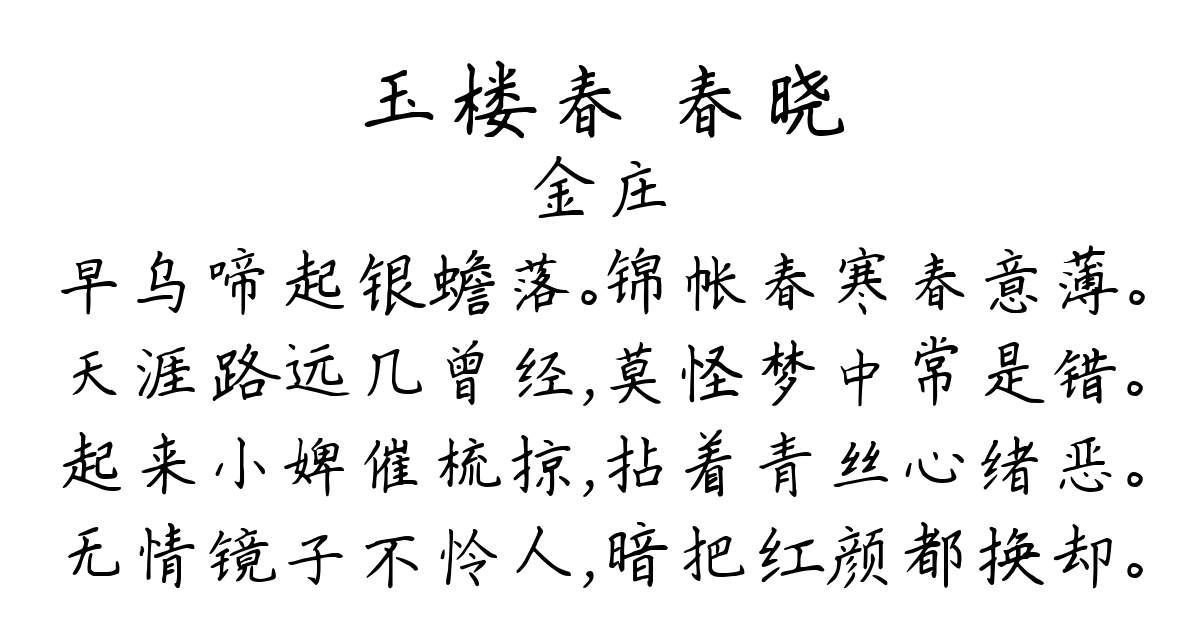 玉楼春 春晓
金庄
早乌啼起银蟾落。锦帐春寒春意薄。
天涯路远几曾经,莫怪梦中常是错。
起来小婢催梳掠,拈着青丝心绪恶。
无情镜子不怜人,暗把红颜都换却。